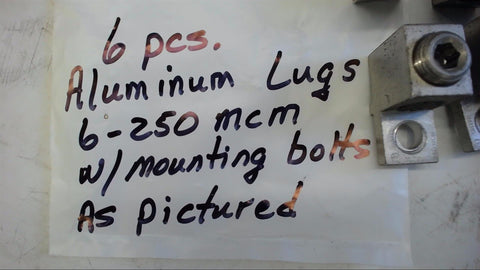 6 pcs.
Aluminum Lugs
6-250 mcm
w/mounting bolts
As pictured